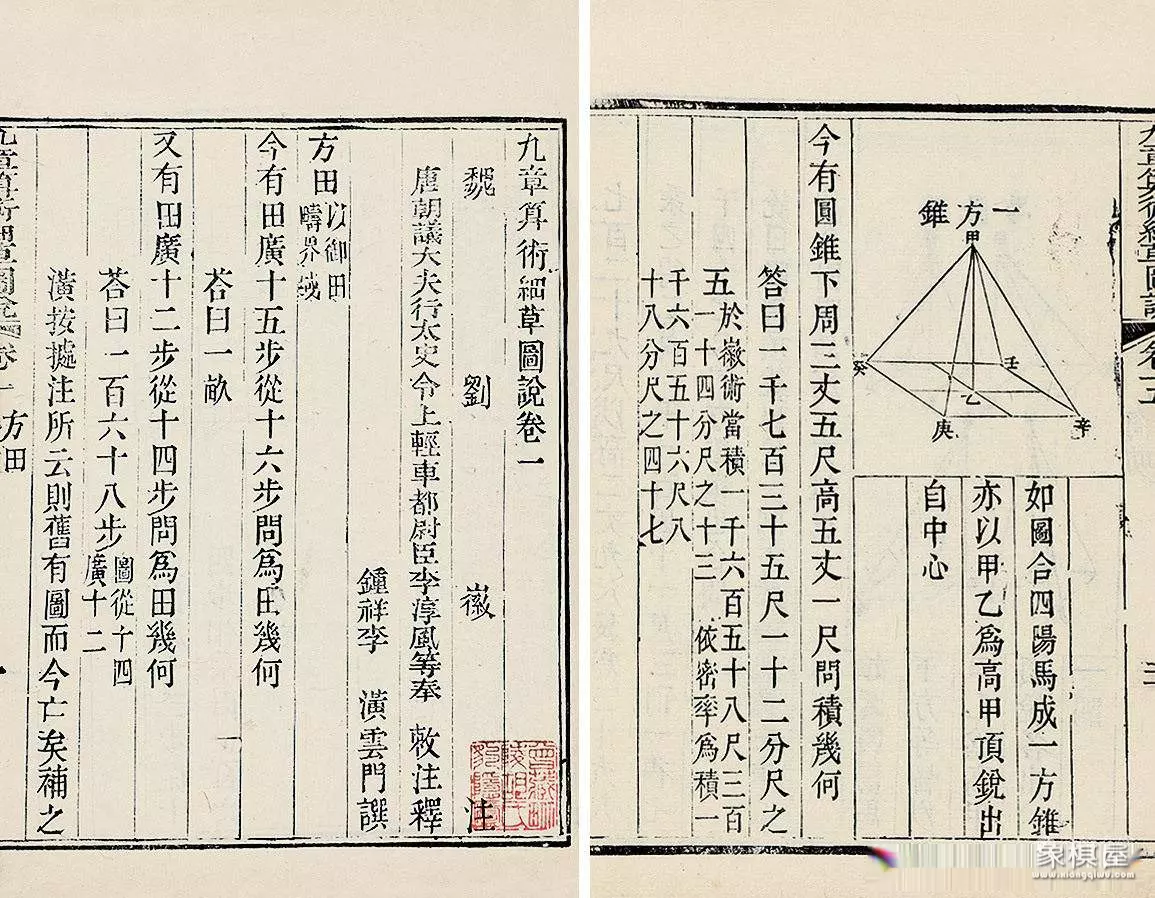 九章算術細草圖說卷一
魏 劉 徽 注
唐朝議大夫行太史令上輕車都尉臣李淳風等奉 敕注釋
鍾祥李 潢雲門譔
方田以御田
疇界域
今有田廣十五步從十六步問爲田幾何
荅曰一畝
又有田廣十二步從十四步問爲田幾何
荅曰一百六十八步圖從十四
廣十二
潢按據注所云則舊有圖而今亡矣補之
九章算術細草圖說 卷一 方田 一
九章算術細草圖說 卷五
一方錐
甲
壬
癸
乙
庚
辛
如圖合四陽馬成一方錐
亦以甲乙爲高甲頂銳出
自中心
今有圓錐下周三丈五尺高五丈一尺問積幾何
答曰一千七百三十五尺一十二分尺之
五於徽術當積一千六百五十八尺三百
一十四分尺之十三 依密率爲積一
千六百五十六尺八
十八分尺之四十七
象棋屋
www.xiangqiwu.com